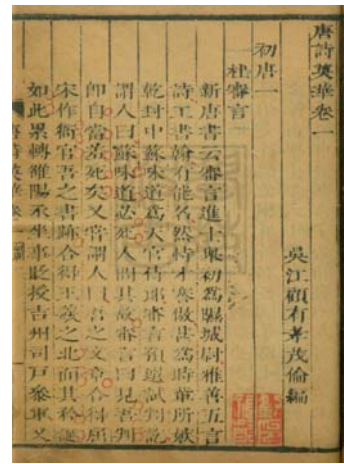 唐詩英華卷一
吳江顧有孝茂倫編
初唐一
杜審言
新唐書云審言進士舉初為隰城尉雅善五言
詩工書翰有能名然恃才謇傲甚為時輩所嫉
乾封中蘇味道為天官侍郎審言預選試判訖
謂人曰蘇味道必死人問其故審言曰見吾判
即自當羞死矣又嘗謂人曰吾之文章合得屈
宋作衙官吾之書跡合得王羲之北面其矜誕
如此累轉雒陽丞坐事貶授吉州司戶參軍又